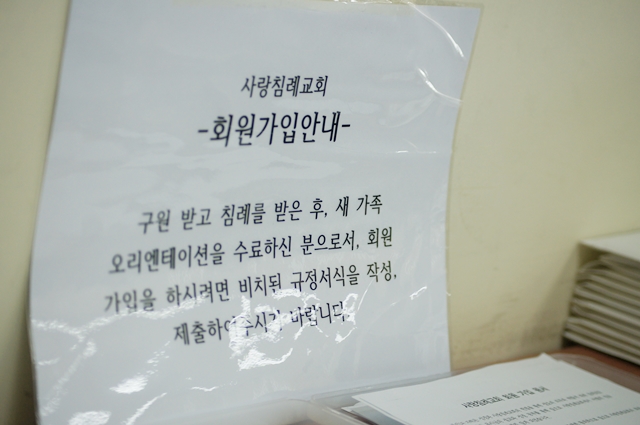 사랑침례교회
-회원가입안내-
구원 받고 침례를 받은 후, 새 가족
오리엔테이션을 수료하신 분으로서, 회원
가입을 하시려면 비치된 규정서식을 작성,
제출하여주시기 바랍니다.
사랑침례교회 회원 가입